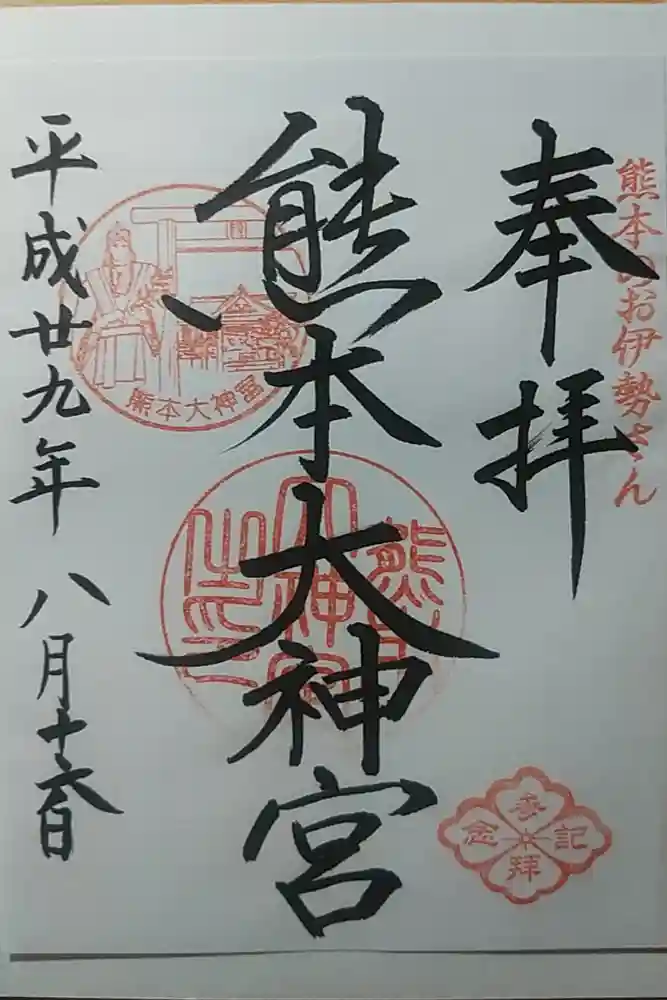 熊本のお伊勢さん
奉拝
参拝記念
熊本大神宮
熊本大神宮之印
熊本大神宮
平成廿九年 八月十六日